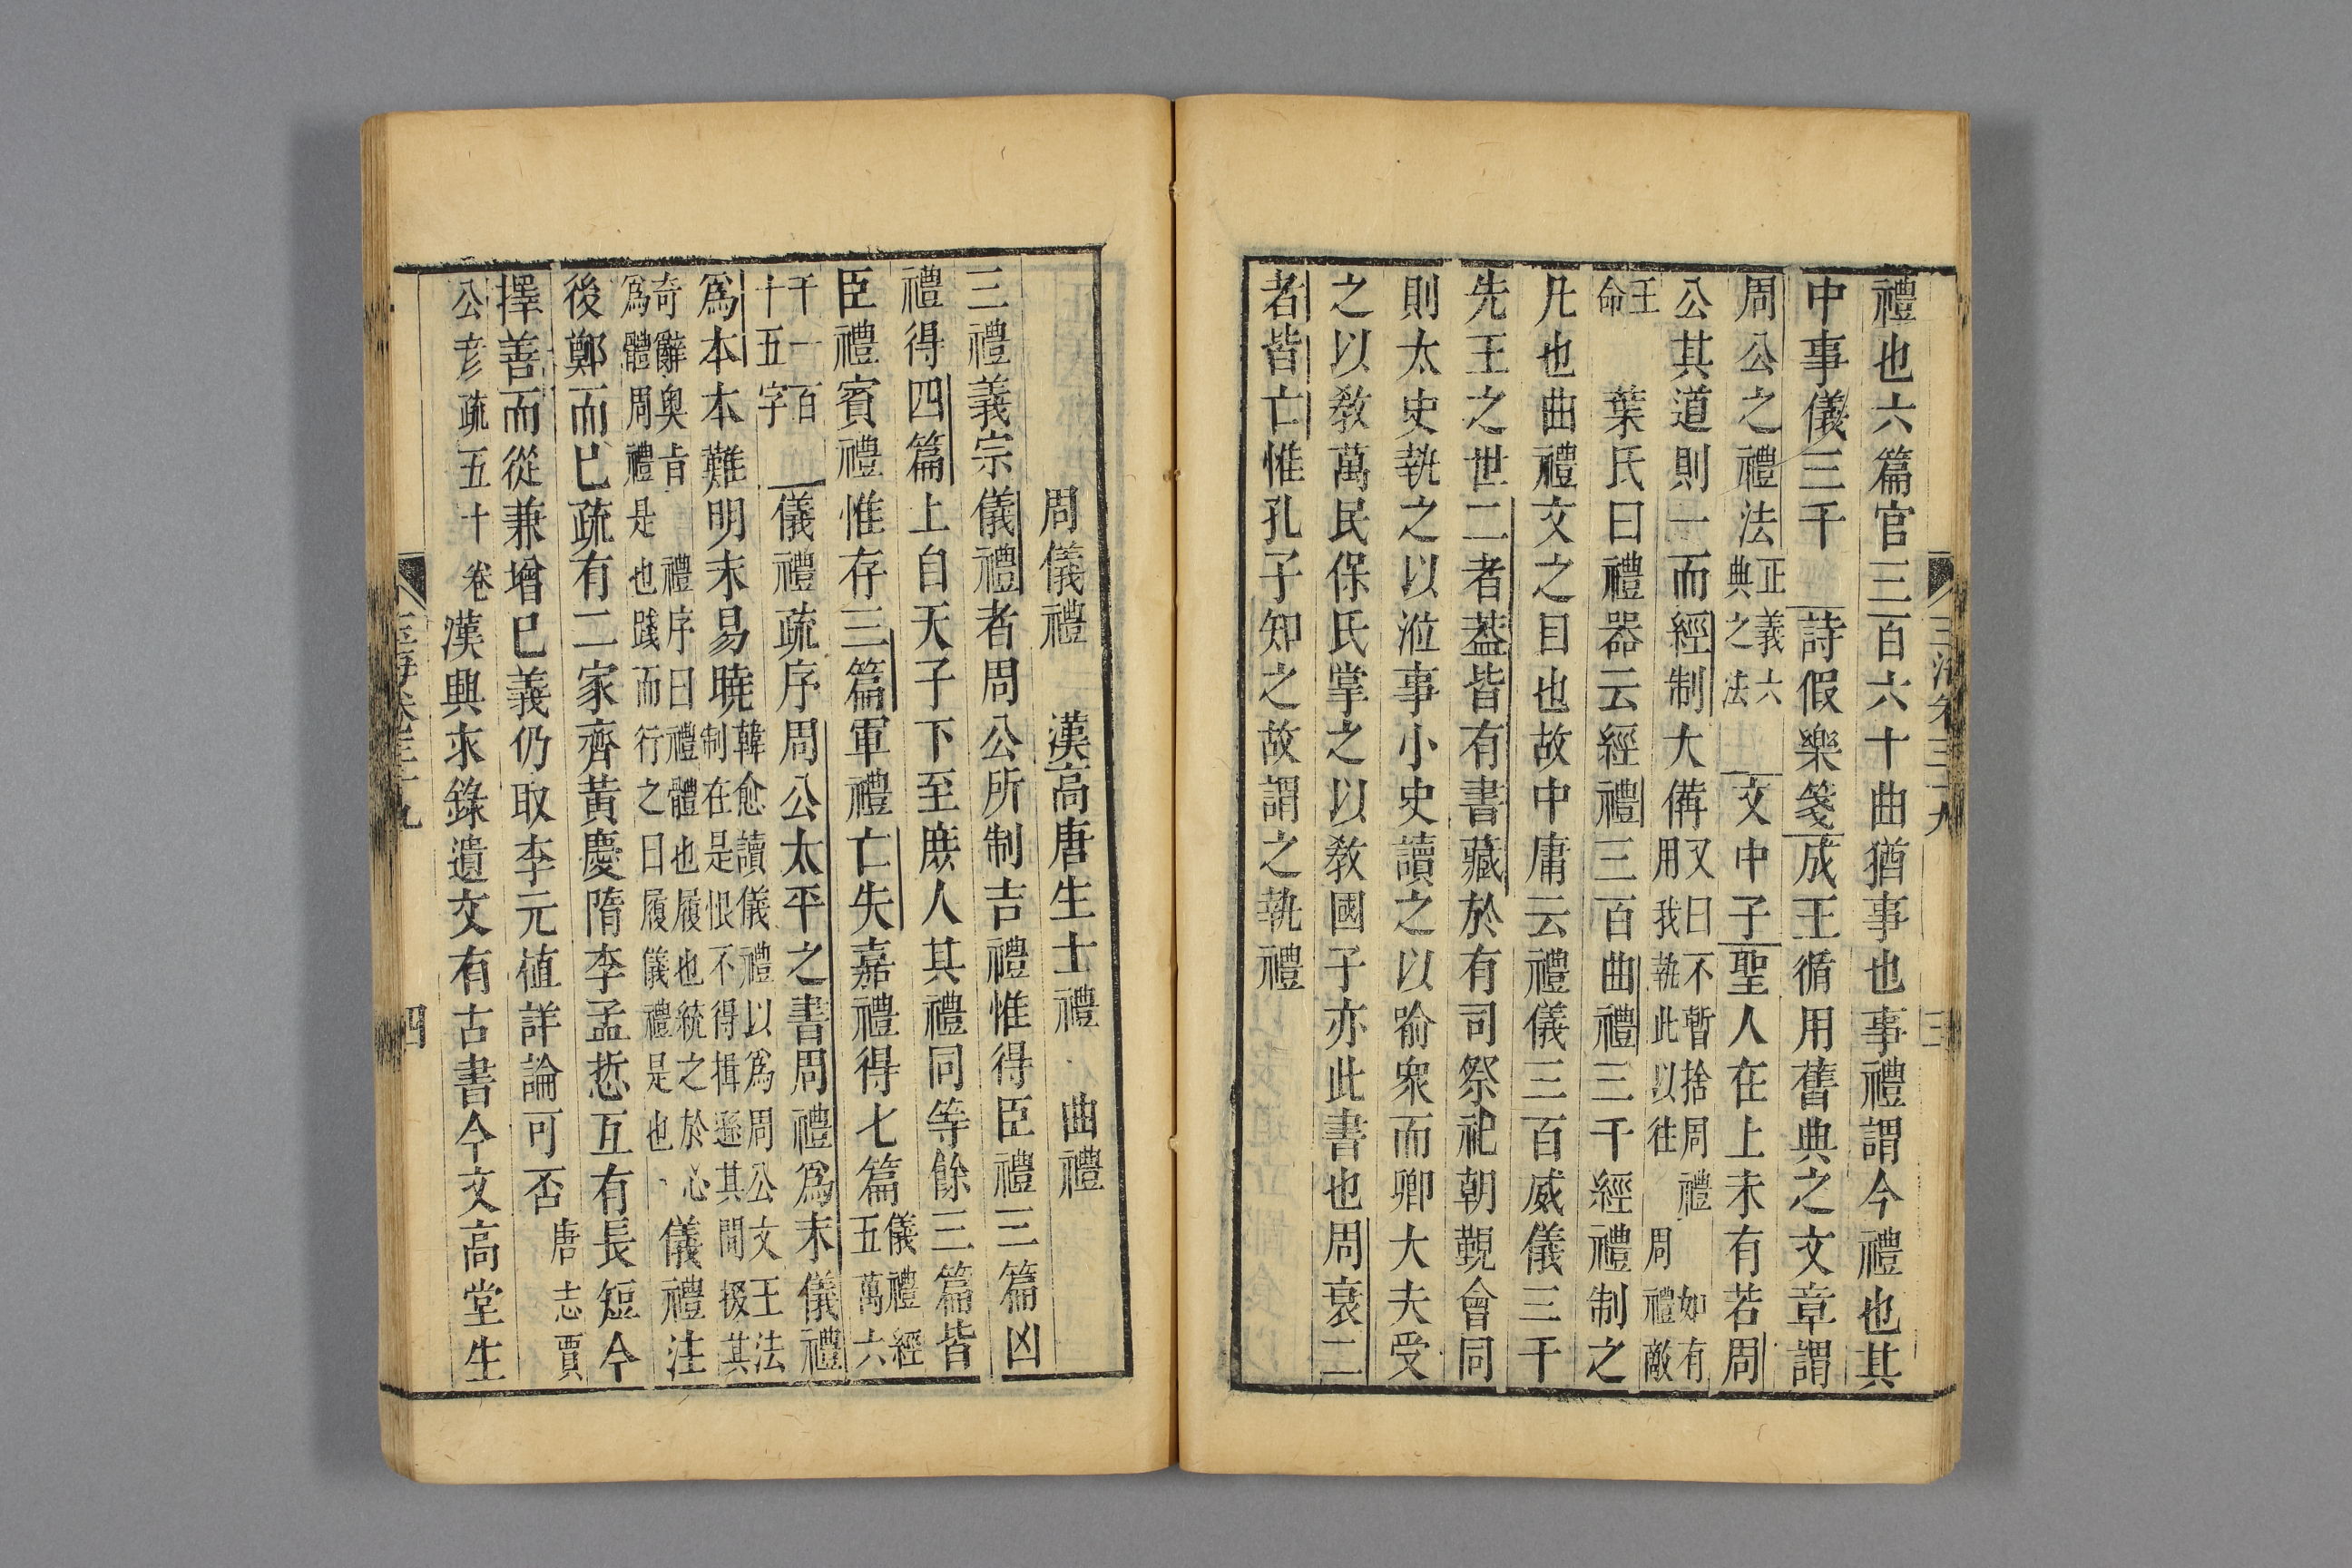 禮也六篇官三百六十曲猶事也事禮謂今禮也其
中事儀三千詩假樂箋成王循用舊典之文章謂
周公之禮法正義六典之法文中子聖人在上未有若周
公其道則一而經制大備又曰不暫捨周禮如有用我執此以往周禮敵
王命葉氏曰禮器云經禮三百曲禮三千經禮制之
凡也曲禮文之目也故中庸云禮儀三百威儀三千
先王之世二者葢皆有書藏於有司祭祀朝覲會同
則太史執之以涖事小史讀之以喻衆而卿大夫受
之以敎萬民保氏掌之以敎國子亦此書也周衰二
者皆亡惟孔子知之故謂之執禮
三
周儀禮 漢高唐生士禮 曲禮
三禮義宗儀禮者周公所制吉禮惟得臣禮三篇凶
禮得四篇上自天子下至庶人其禮同等餘三篇皆
臣禮賓禮惟存三篇軍禮亡失嘉禮得七篇儀禮經五萬六
千一百十五字儀禮疏序周公太平之書周禮爲末儀禮
爲本本難明末易曉韓愈讀儀禮以爲周公文王法制在是恨不得揖遜其間掇其
奇辭奧旨爲體周禮是也踐而行之曰履儀禮是也禮序曰禮體也履也統之於心儀禮注
後鄭而已疏有二家齊黃慶隋李孟悊互有長短今
擇善而從兼增已義仍取李元植詳論可否唐志賈
公彥疏五十卷漢興求錄遺文有古書今文高堂生
玉海卷三十九
四